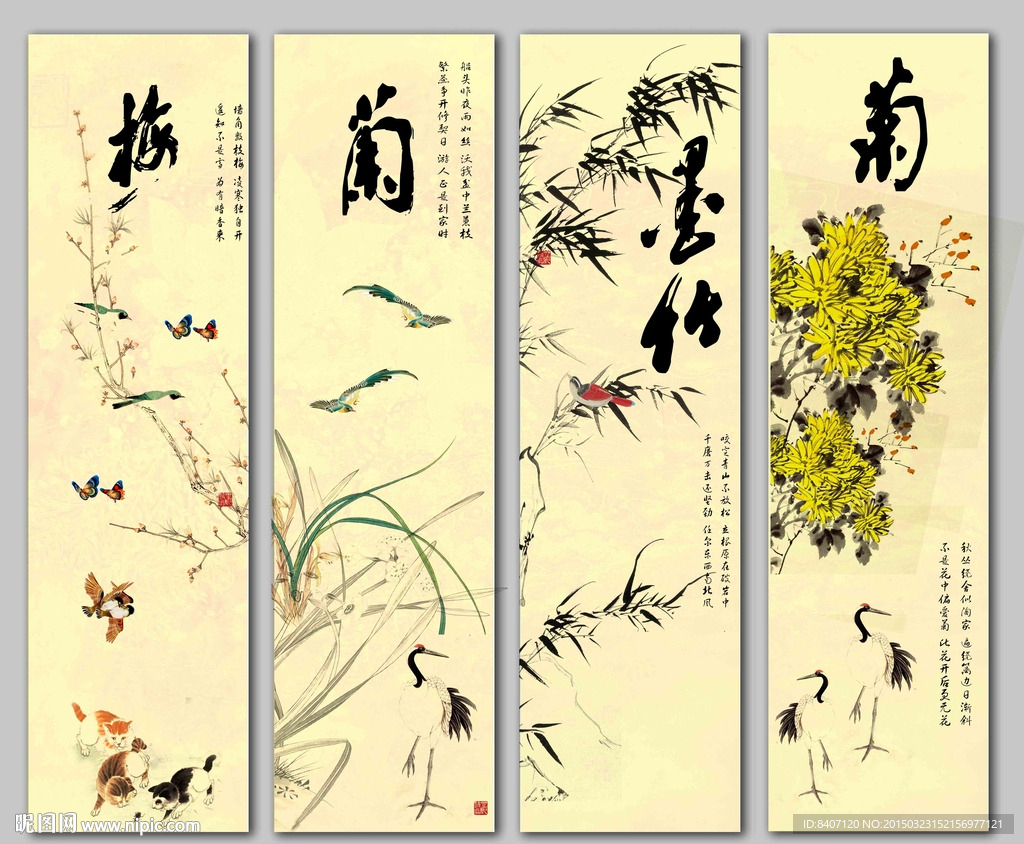 梅
墙角数枝梅 凌寒独自开
遥知不是雪 为有暗香来
蘭
船头昨夜雨如丝 沃我盆中兰蕙枝
繁蕊争开修契日 游人正是到家时
墨竹
咬定青山不放松 立根原在破岩中
千磨万击还坚劲 任尔东西南北风
菊
秋丛绕舍似陶家 遍绕篱边日渐斜
不是花中偏爱菊 此花开后更无花
昵图网 www.nipic.com
ID:8407120 NO:20150323152156977121